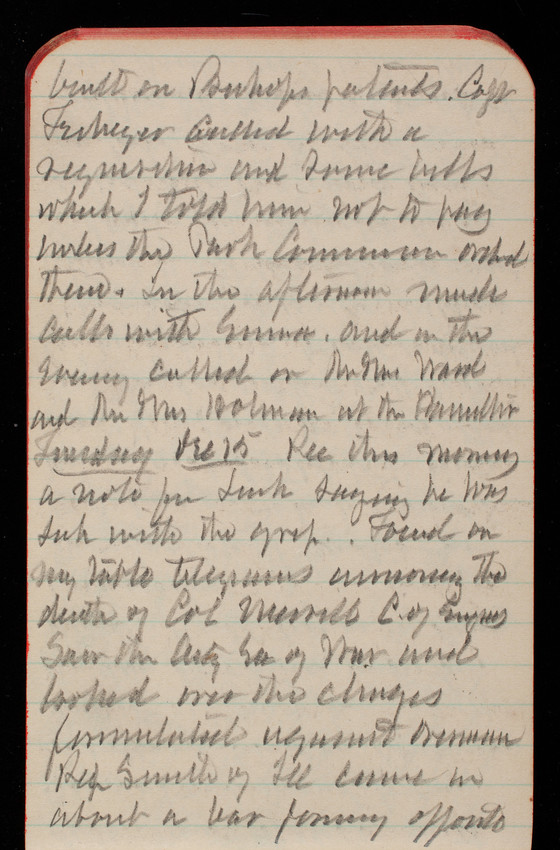 built on Bishops patents. Capt
called with a
requisition and some bills
which I told him not to pay
unless the Park Commission ordered
them. In the afternoon made
calls with Emma. and in the
Evening called on Mr Mrs Ward
and Mr Mrs Holman at the Hamilton
Tuesday Dec 15 Rec this morning
a note from Turk saying he was
sick with the grip. Found on
my table telegrams announcing the
death of Col Merrill C. of Engrs
Saw the Actg Sec of War and
looked over the charges
formulated against
Rep Smith of Ill came in
about a bar forming opposite